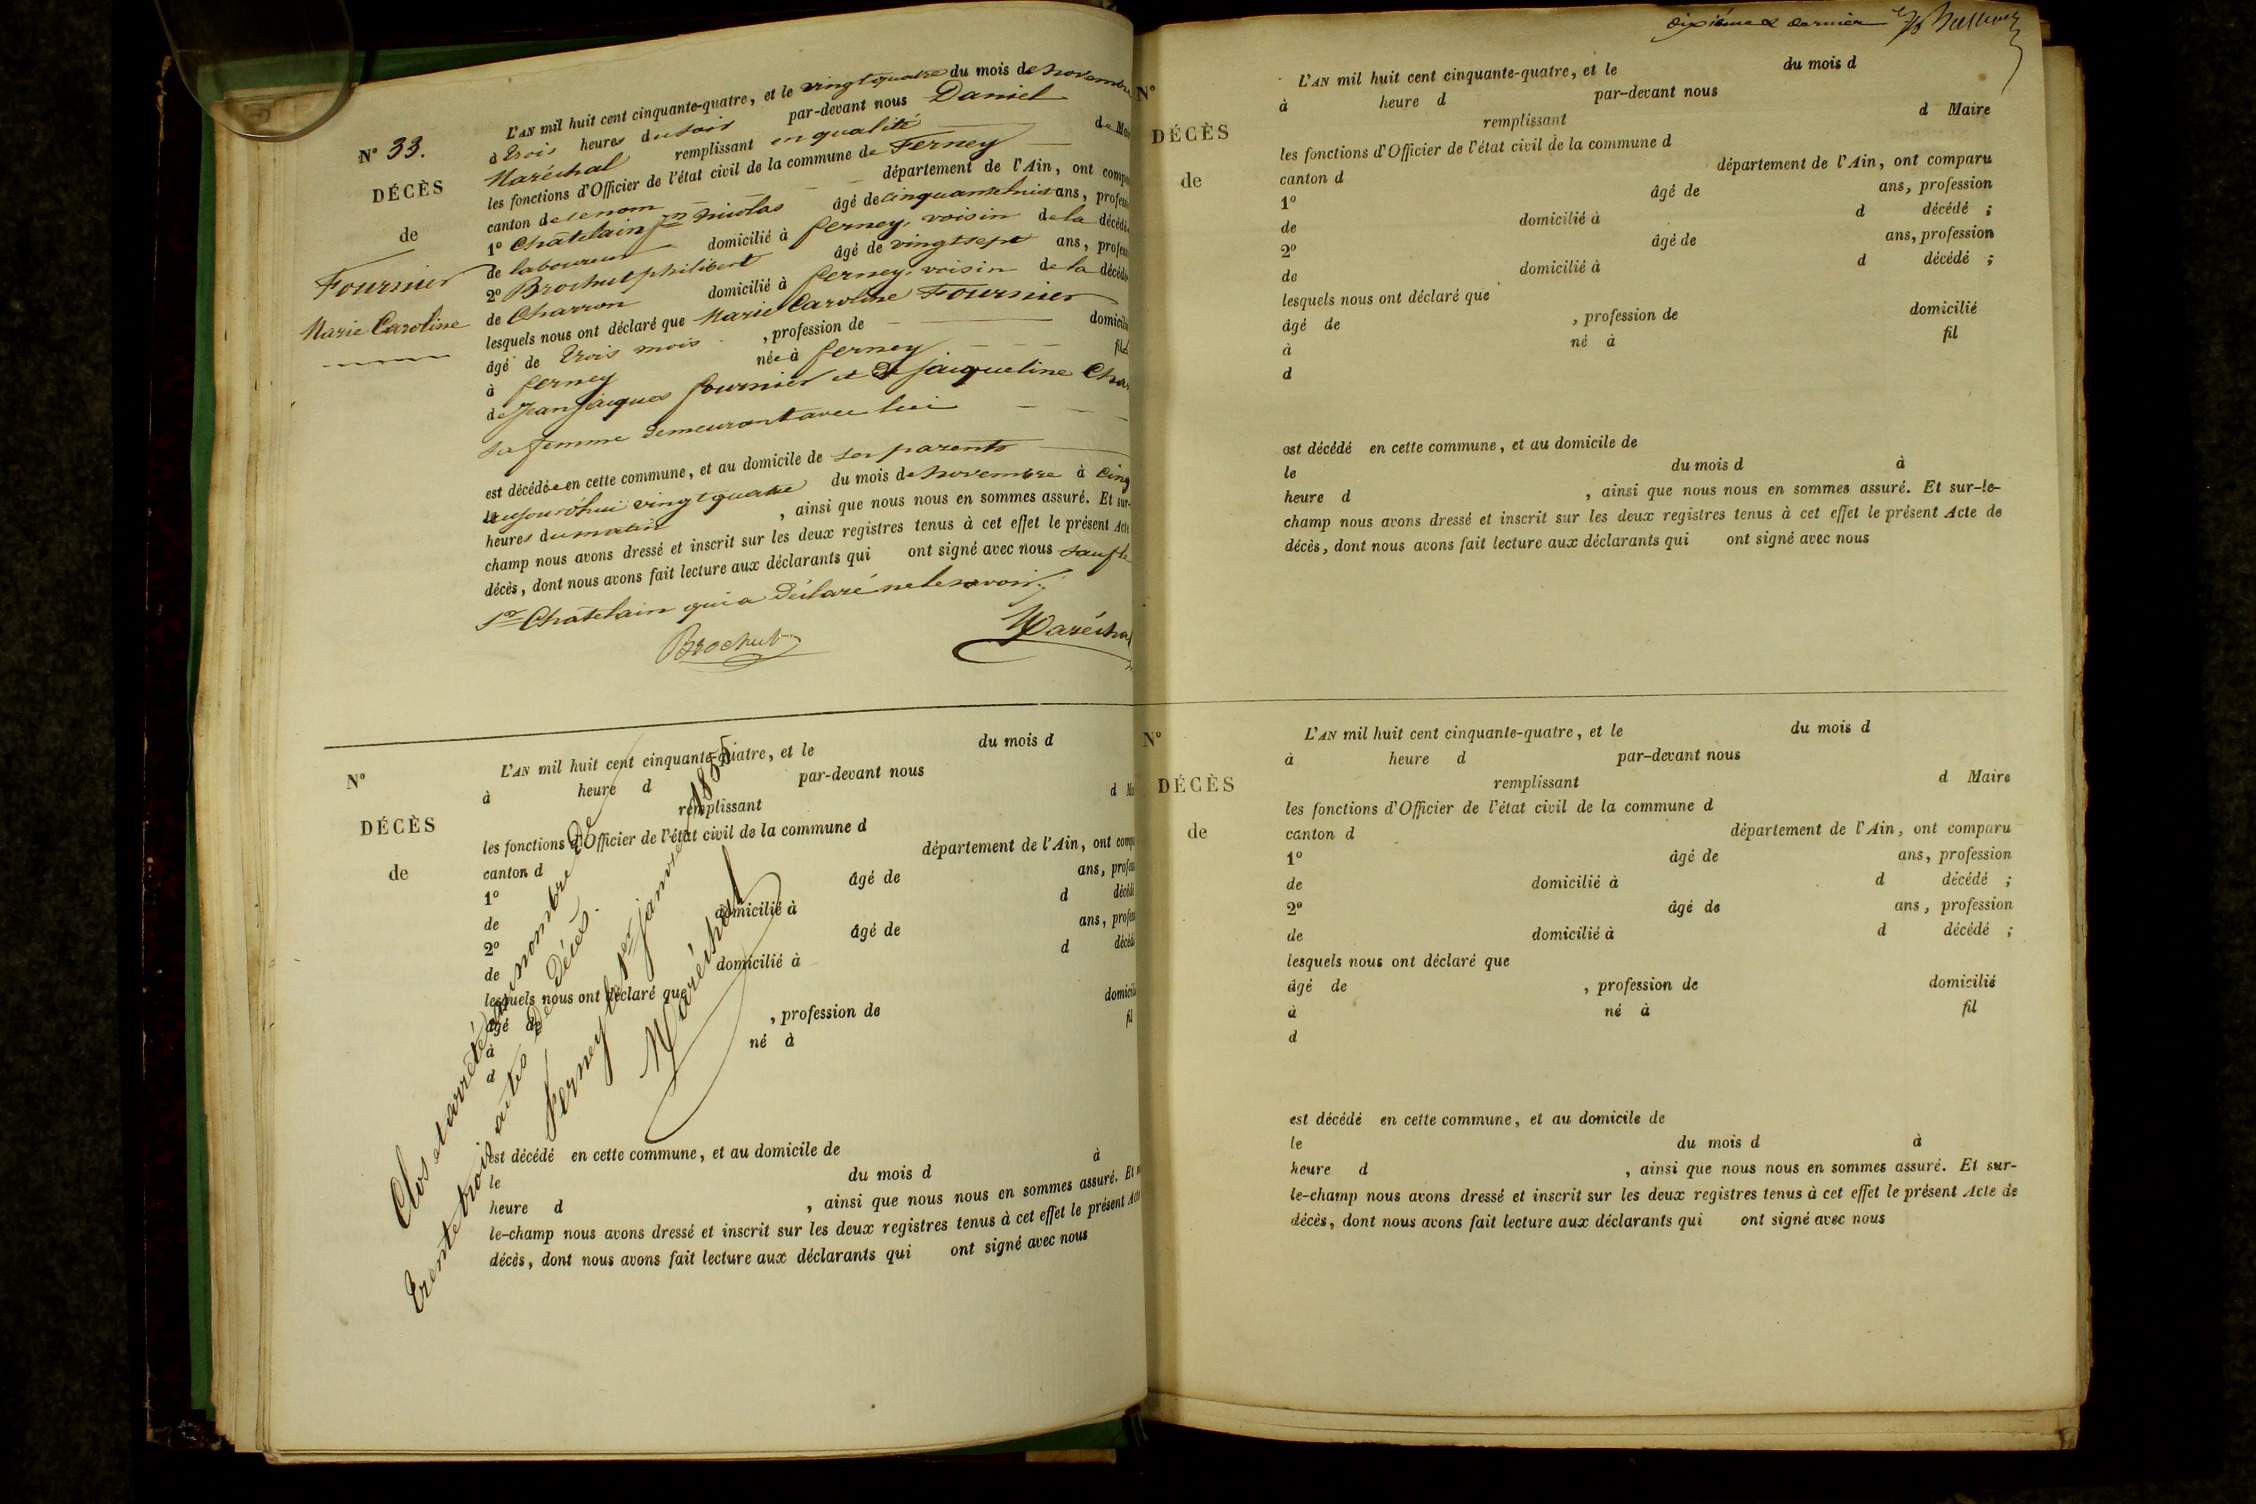 N° 33.
DÉCÈS
de
Fournier
Marie Caroline
L'AN mil huit cent cinquante-quatre, et le vingt quatre du mois de Novembre
à trois heures du soir par-devant nous Daniel
Maréchal remplissant en qualité de Mai
les fonctions d'Officier de l'état civil de la commune de Ferney
canton de ce nom département de l'Ain, ont compa
1° Châtelain Nicolas âgé de cinquante huit ans, profess
de laboureur domicilié à ferney, voisin de la décédé
2° Brochut philibert âgé de vingt sept ans, profess
de Charron domicilié à ferney, voisin de la décédé
lesquels nous ont déclaré que Marie Caroline Fournier
âgé de trois mois , profession de domicili
à ferney née à ferney fille
de Jean Jacques fournier et de jacqueline Char
sa femme demeurant avec lui
est décédée en cette commune, et au domicile de ses parents
le aujourd'hui vingt quatre du mois de Novembre à cinq
heures du matin , ainsi que nous nous en sommes assuré. Et sur-
champ nous avons dressé et inscrit sur les deux registres tenus à cet effet le présent Acte
décès, dont nous avons fait lecture aux déclarants qui ont signé avec nous sauf le
Sr Chatelain qui a déclaré ne le savoir.
Brochut Maréchal
N°
DÉCÈS
de
L'AN mil huit cent cinquante-quatre, et le du mois d
à heure d par-devant nous
remplissant d Ma
les fonctions d'Officier de l'état civil de la commune d
canton d département de l'Ain, ont compa
1° âgé de ans, profess
de domicilié à d décédé
2° âgé de ans, profess
de domicilié à d décédé
lesquels nous ont déclaré que
âgé de , profession de domicili
à né à fil
d
est décédé en cette commune, et au domicile de
le du mois d à
heure d , ainsi que nous nous en sommes assuré. Et
le-champ nous avons dressé et inscrit sur les deux registres tenus à cet effet le présent Acte
décès, dont nous avons fait lecture aux déclarants qui ont signé avec nous
Clos et arrêté au nombre de
trente trois actes de décès.
ferney le 1er janvier 1855
Maréchal
dixième & dernier
N°
DÉCÈS
de
L'AN mil huit cent cinquante-quatre, et le du mois d
à heure d par-devant nous
remplissant d Maire
les fonctions d'Officier de l'état civil de la commune d
canton d département de l'Ain, ont comparu
1° âgé de ans, profession
de domicilié à d décédé ;
2° âgé de ans, profession
de domicilié à d décédé ;
lesquels nous ont déclaré que
âgé de , profession de domicilié
à né à fil
d
est décédé en cette commune, et au domicile de
le du mois d à
heure d , ainsi que nous nous en sommes assuré. Et sur-le-
champ nous avons dressé et inscrit sur les deux registres tenus à cet effet le présent Acte de
décès, dont nous avons fait lecture aux déclarants qui ont signé avec nous
N°
DÉCÈS
de
L'AN mil huit cent cinquante-quatre, et le du mois d
à heure d par-devant nous
remplissant d Maire
les fonctions d'Officier de l'état civil de la commune d
canton d département de l'Ain, ont comparu
1° âgé de ans, profession
de domicilié à d décédé ;
2° âgé de ans, profession
de domicilié à d décédé ;
lesquels nous ont déclaré que
âgé de , profession de domicilié
à né à fil
d
est décédé en cette commune, et au domicile de
le du mois d à
heure d , ainsi que nous nous en sommes assuré. Et sur-
le-champ nous avons dressé et inscrit sur les deux registres tenus à cet effet le présent Acte de
décès, dont nous avons fait lecture aux déclarants qui ont signé avec nous